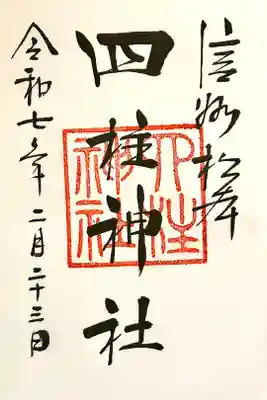 信州松本
四柱神社
令和七年二月二十三日
四柱
神社